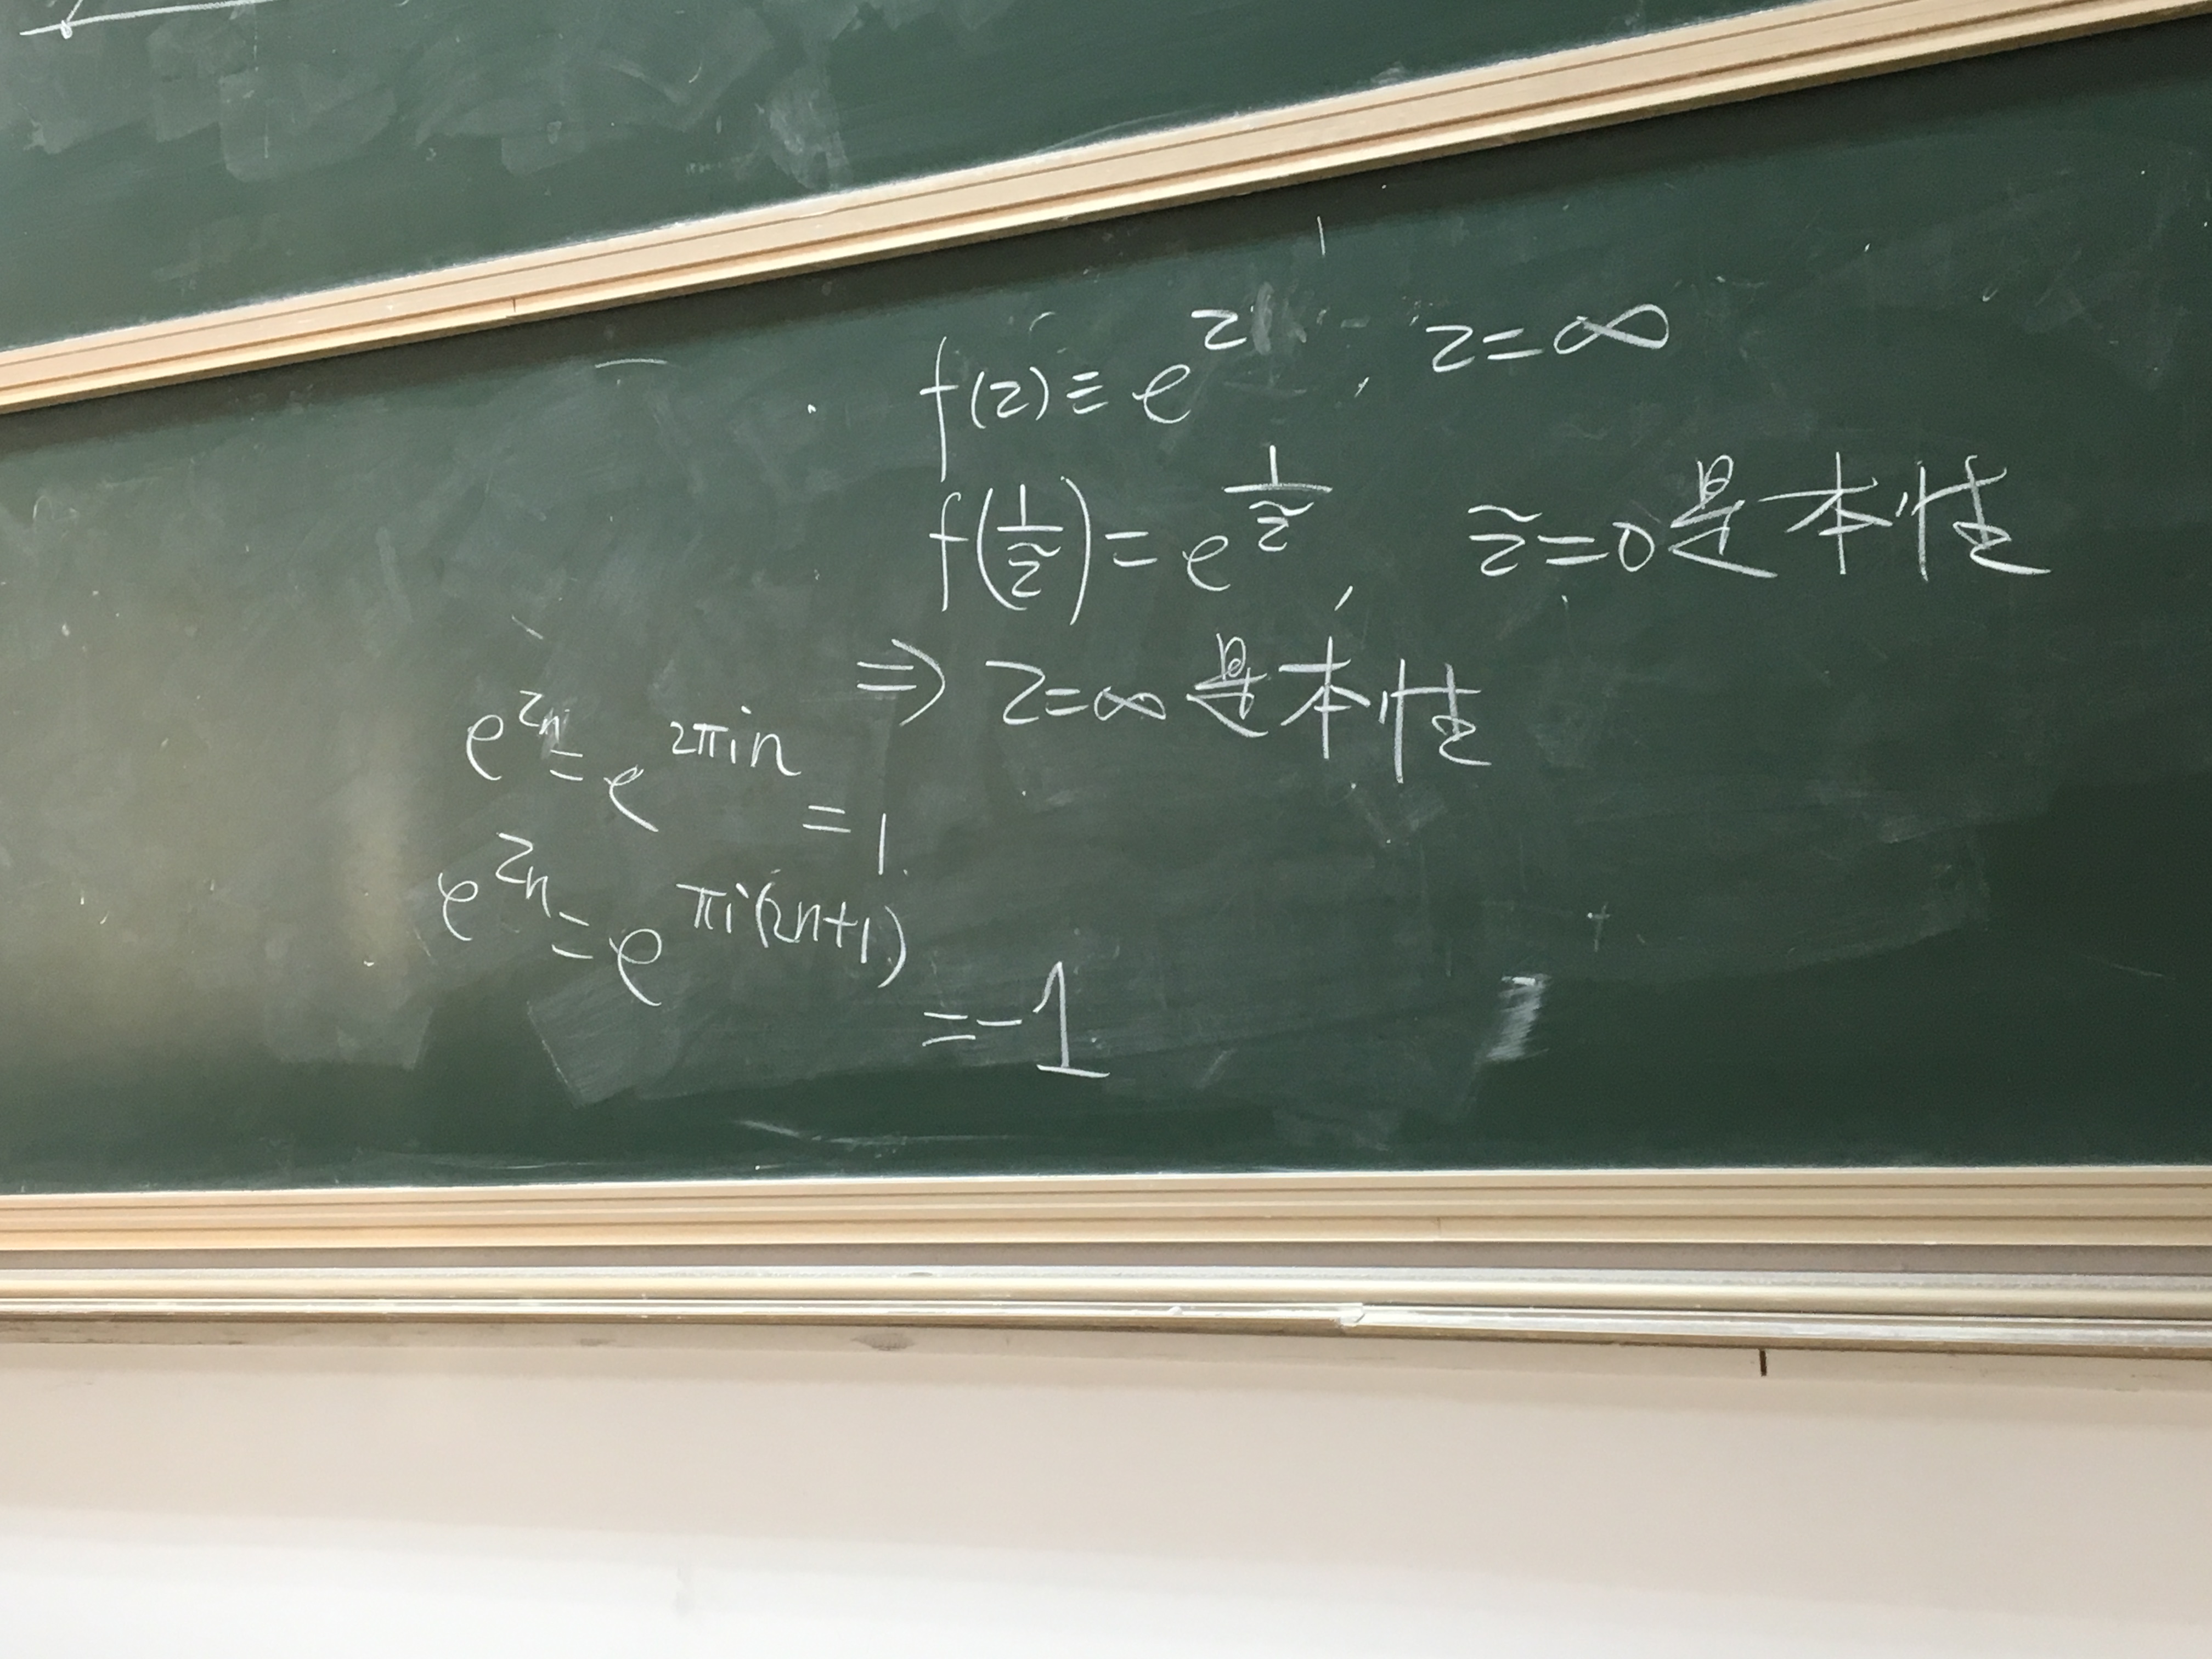 f(z) = e^z, z=∞
f(1/z̃) = e^{1/z̃}, z̃=0是本性
⇒ z=∞是本性
e^{z_n} = e^{2πin} = 1
e^{z_n} = e^{πi(2n+1)} = -1